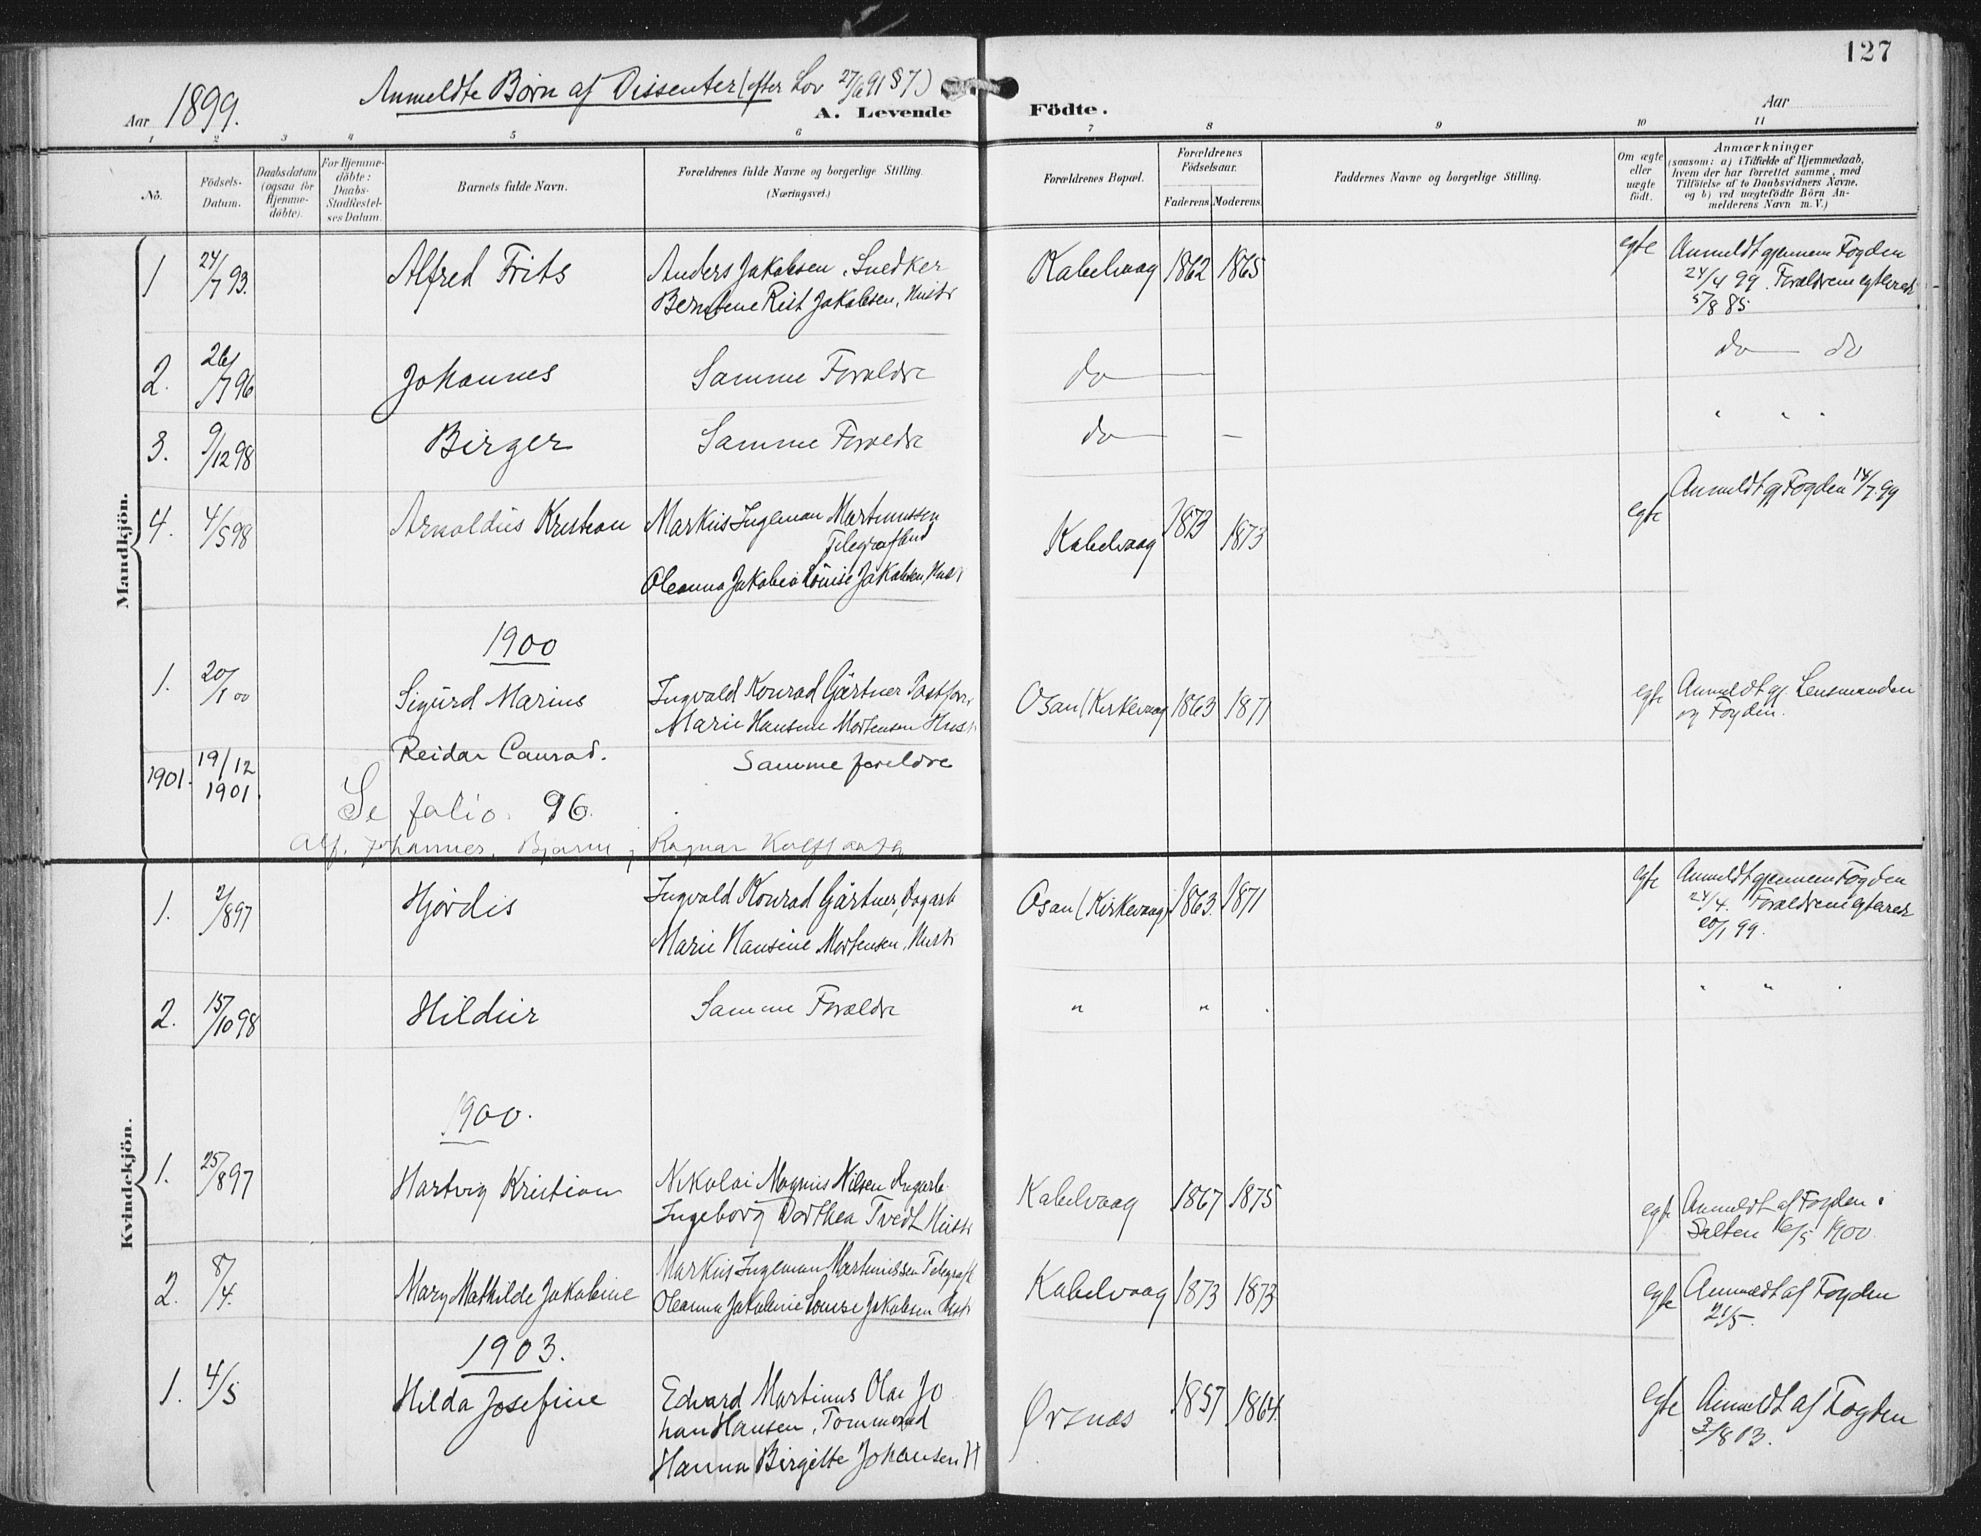 127
Anmeldte Børn af Dissenter (efter Lov 27/6 91 §7)
Aar 1899.
A. Levende Födte.
Aar
1 2 3 4 5 6 7 8 9 10 11
No.
Födsels-Datum.
Daabsdatum (ogsaa for Hjemme-döbte).
For Hjemme-döbte: Daabs-Stadfestel-ses Datum.
Barnets fulde Navn.
Forældrenes fulde Navne og borgerlige Stilling.
(Næringsvei.)
Forældrenes Bopæl.
Forældrenes Födselsaar.
Faderens. Moderens.
Faddernes Navne og borgerlige Stilling.
Om ægte eller uægte født.
Anmærkninger
(saasom: a) i Tilfælde af Hjemmedaab,
hvem der har forrettet samme, med
Tilföielse af to Daabsvidners Navne,
og b) ved uægtefödte Börn An-
melderens Navn m. V.)
Mandkjön.
1 24/7 93. Alfred Frits Anders Jakobsen, Snedker Kabelvaag 1862 1865 egte Anmeldt gjennem Fogden
Rist Jakobsen, Hustr 24/4 99. Forældrene
5/8 85
2. 26/7 96 Johannes Samme Forældre do do do
3. 9/12 98 Birger Samme Forældre do " " "
4. 4/5 98 Arnoldus Kristian Markus Ingeman Martinussen Kabelvaag 1873 1873 egte Anmeldt gj Fogden 14/7 99
Oleanna Louise Jakobsen, Hustr
1900
1. 20/1 00 Sigurd Marius Ingvald Konrad Gärtner Osan (Kirkevaag 1863 1871 egte Anmeldt gj. Lensmanden
Marie Hansine Mortensen Hustr og Fogden.
1901. 19/12 1901. Reidar Conrad. Samme foreldre
Se folio. 96.
Alf. Johannes, Bjarne, Ragnar
Kvindekjön.
1. 2/8 97 Hjördis Ingvald Konrad Gärtner, Dagarb Osan (Kirkevaag) 1863. 1871 egte Anmeldt gjennem Fogden
Marie Hansine Mortensen, Hustr 24/4. Forældrene
20/1 99.
2. 15/10 98 Hildur Samme Forældre " " " "
1900.
1. 25/8 97 Hartvig Kristian Nikolai Magnus Nilsen Dagarb. Kabelvaag 1867 1875 egte Anmeldt af Fogden i
Ingeborg Dorthea Tvedt Hustr Salten 16/5 1900
2. 8/4. Mary Mathilde Jakobine Markus Ingeman Martinussen Telegrafb Kabelvaag 1873 1873 egte Anmeldt af Fogden
Oleanna Jakobine Louise Jakobsen Hustr 21/5.
1903.
1. 4/5 Hilda Josefine Edvard Martinus Olai Jo Ørsnæs 1857 1864. egte Anmeldt af Fogden
han Hansen, 3/8 03.
Hanna Birgitte Johansen H